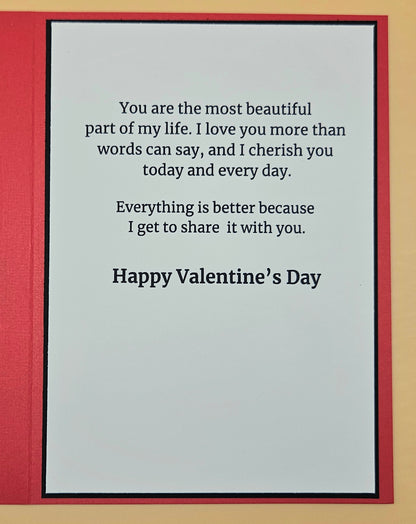 You are the most beautiful
part of my life. I love you more than
words can say, and I cherish you
today and every day.
Everything is better because
I get to share  it with you.
Happy Valentine’s Day